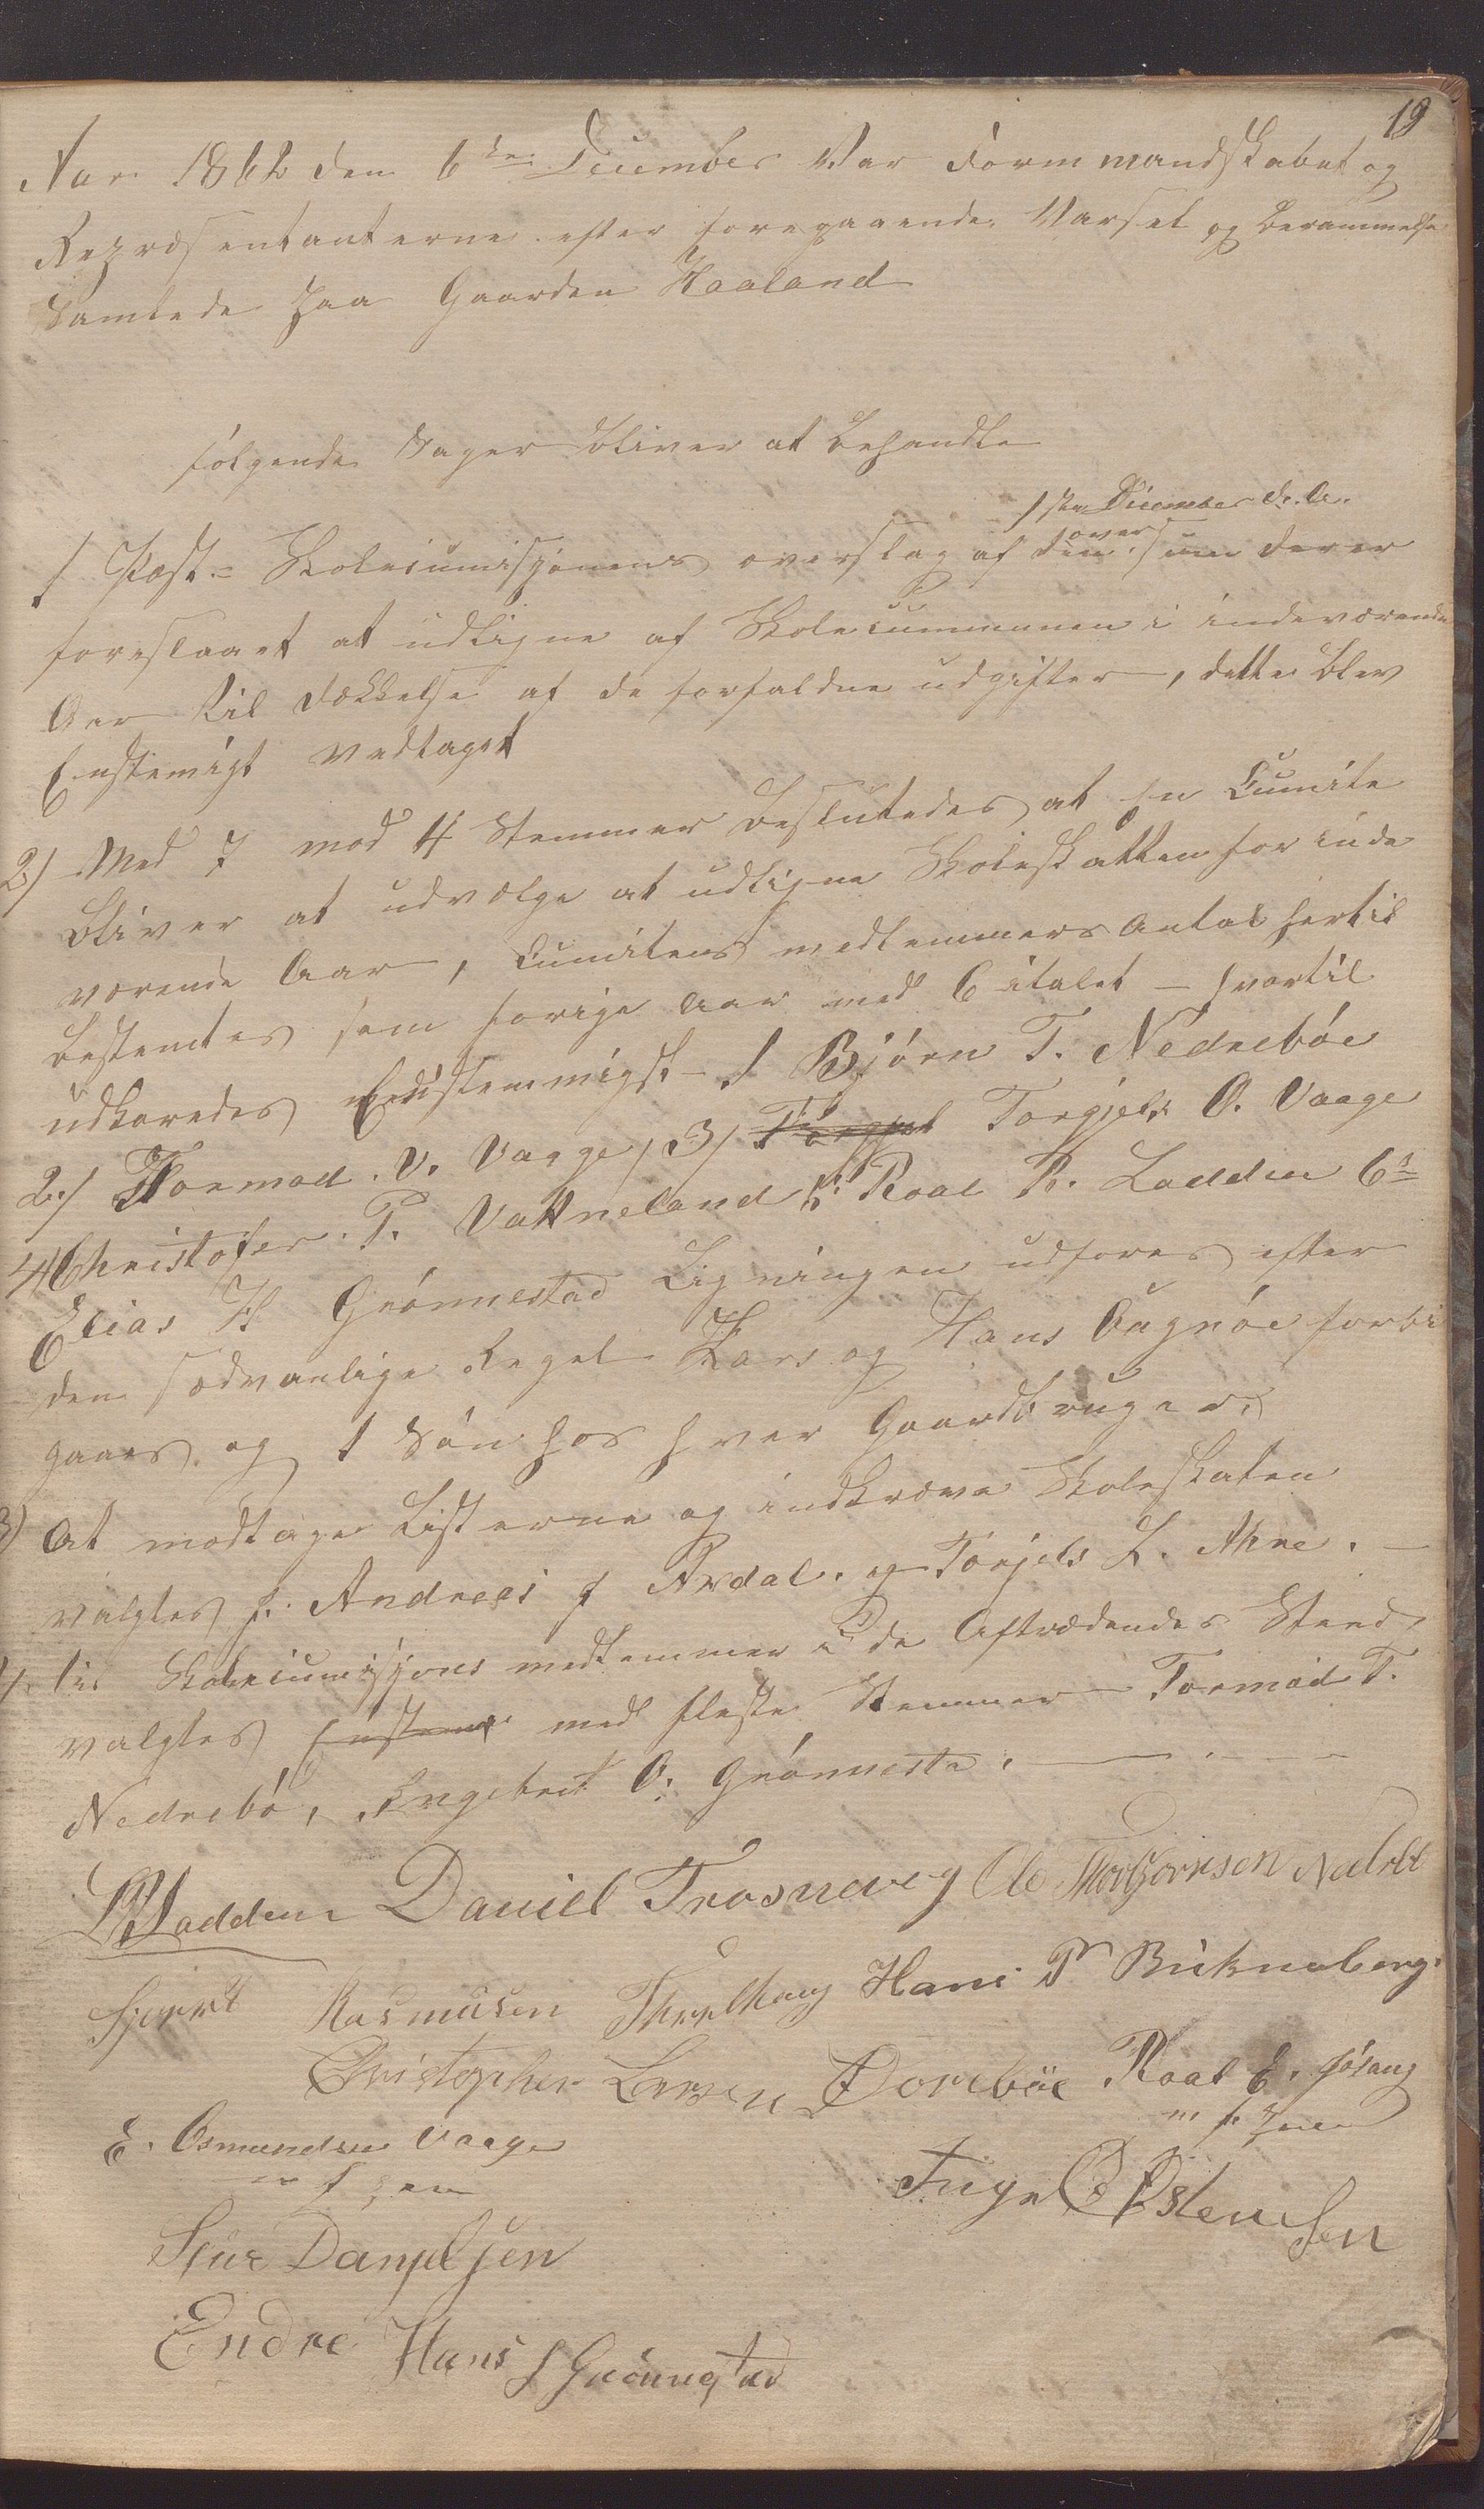 19
Aar 1862 den 6te December Var Formmandskabet og
Repræsentanterne efter foregaaende Varsel og berammelse
Samlede paa Gaarden Haaland
følgende Sager bliver at behandle
1ste December d. A.
1 Post.= Skolecumisjonens overslag af den over Sum der er
foreslaaet at udligne af Skolecummunen i indeværende
Aar til dækkelse af de forfaldne udgifter, dette blev
Enstemigt vedtaget
2/ Med 7 mod 4 Stemmer besluttedes at en Cumite
bliver at udvælge at udligne Skoleskatten for inde
værende Aar, Cumiteens medlemmers Antal hertil
bestemtes som forige Aar med 6 italet – hvortil
udkaaredes Enstemmigst – 1 Bjørn T. Nedrebøe
2/ Tormod V. Vaage, 3/ Torgjels O. Vaage
4 Christofer T. Vattneland 5 Roal R. Ladden 6te
Elias H Grønnestad Ligningen udføres efter
den sædvanlige Regel Lars og Hans Bugnøe forbi
gaaes og 1 Søn hos hver Gaardbruger,
3) At modtage Listerne og indkræve Skoleskaten
valgtes Andreas J Ardal og Torjels L. Ahre. –
4. til Skolecumisjons medlemmer i de Aftrædendes Sted
valgtes med fleste Stemmer Tormod T.
Nedrebø, Engebret O. Grønneste.
Ladden Daniel Trosnavg Ole Thorbjørnsen Nedreb
Sjovrt Rasmusen Hans P Birkneberg
Christopher Larsen Dorebøe Roal E. Jøsang
m. f. Pen
E. Osmundsen Vaage
m f pen
Inge Østensen
Siur Danjelsen
Endre Hans S Grønnestad